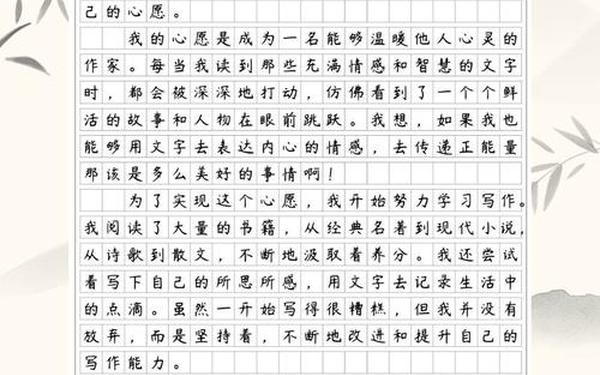 己的心愿。
我的心愿是成为一名能够温暖他人心灵的
作家。每当我读到那些充满情感和智慧的文字
时，都会被深深地打动，仿佛看到了一个个鲜
活的故事和人物在眼前跳跃。我想，如果我也
能够用文字去表达内心的情感，去传递正能量
那该是多么美好的事情啊！
为了实现这个心愿，我开始努力学习写作。
我阅读了大量的书籍，从经典名著到现代小说，
从诗歌到散文，不断地汲取着养分。我还尝试
着写下自己的所思所感，用文字去记录生活中
的点滴。虽然一开始写得很糟糕，但我并没有
放弃，而是坚持着，不断地改进和提升自己的
写作能力。